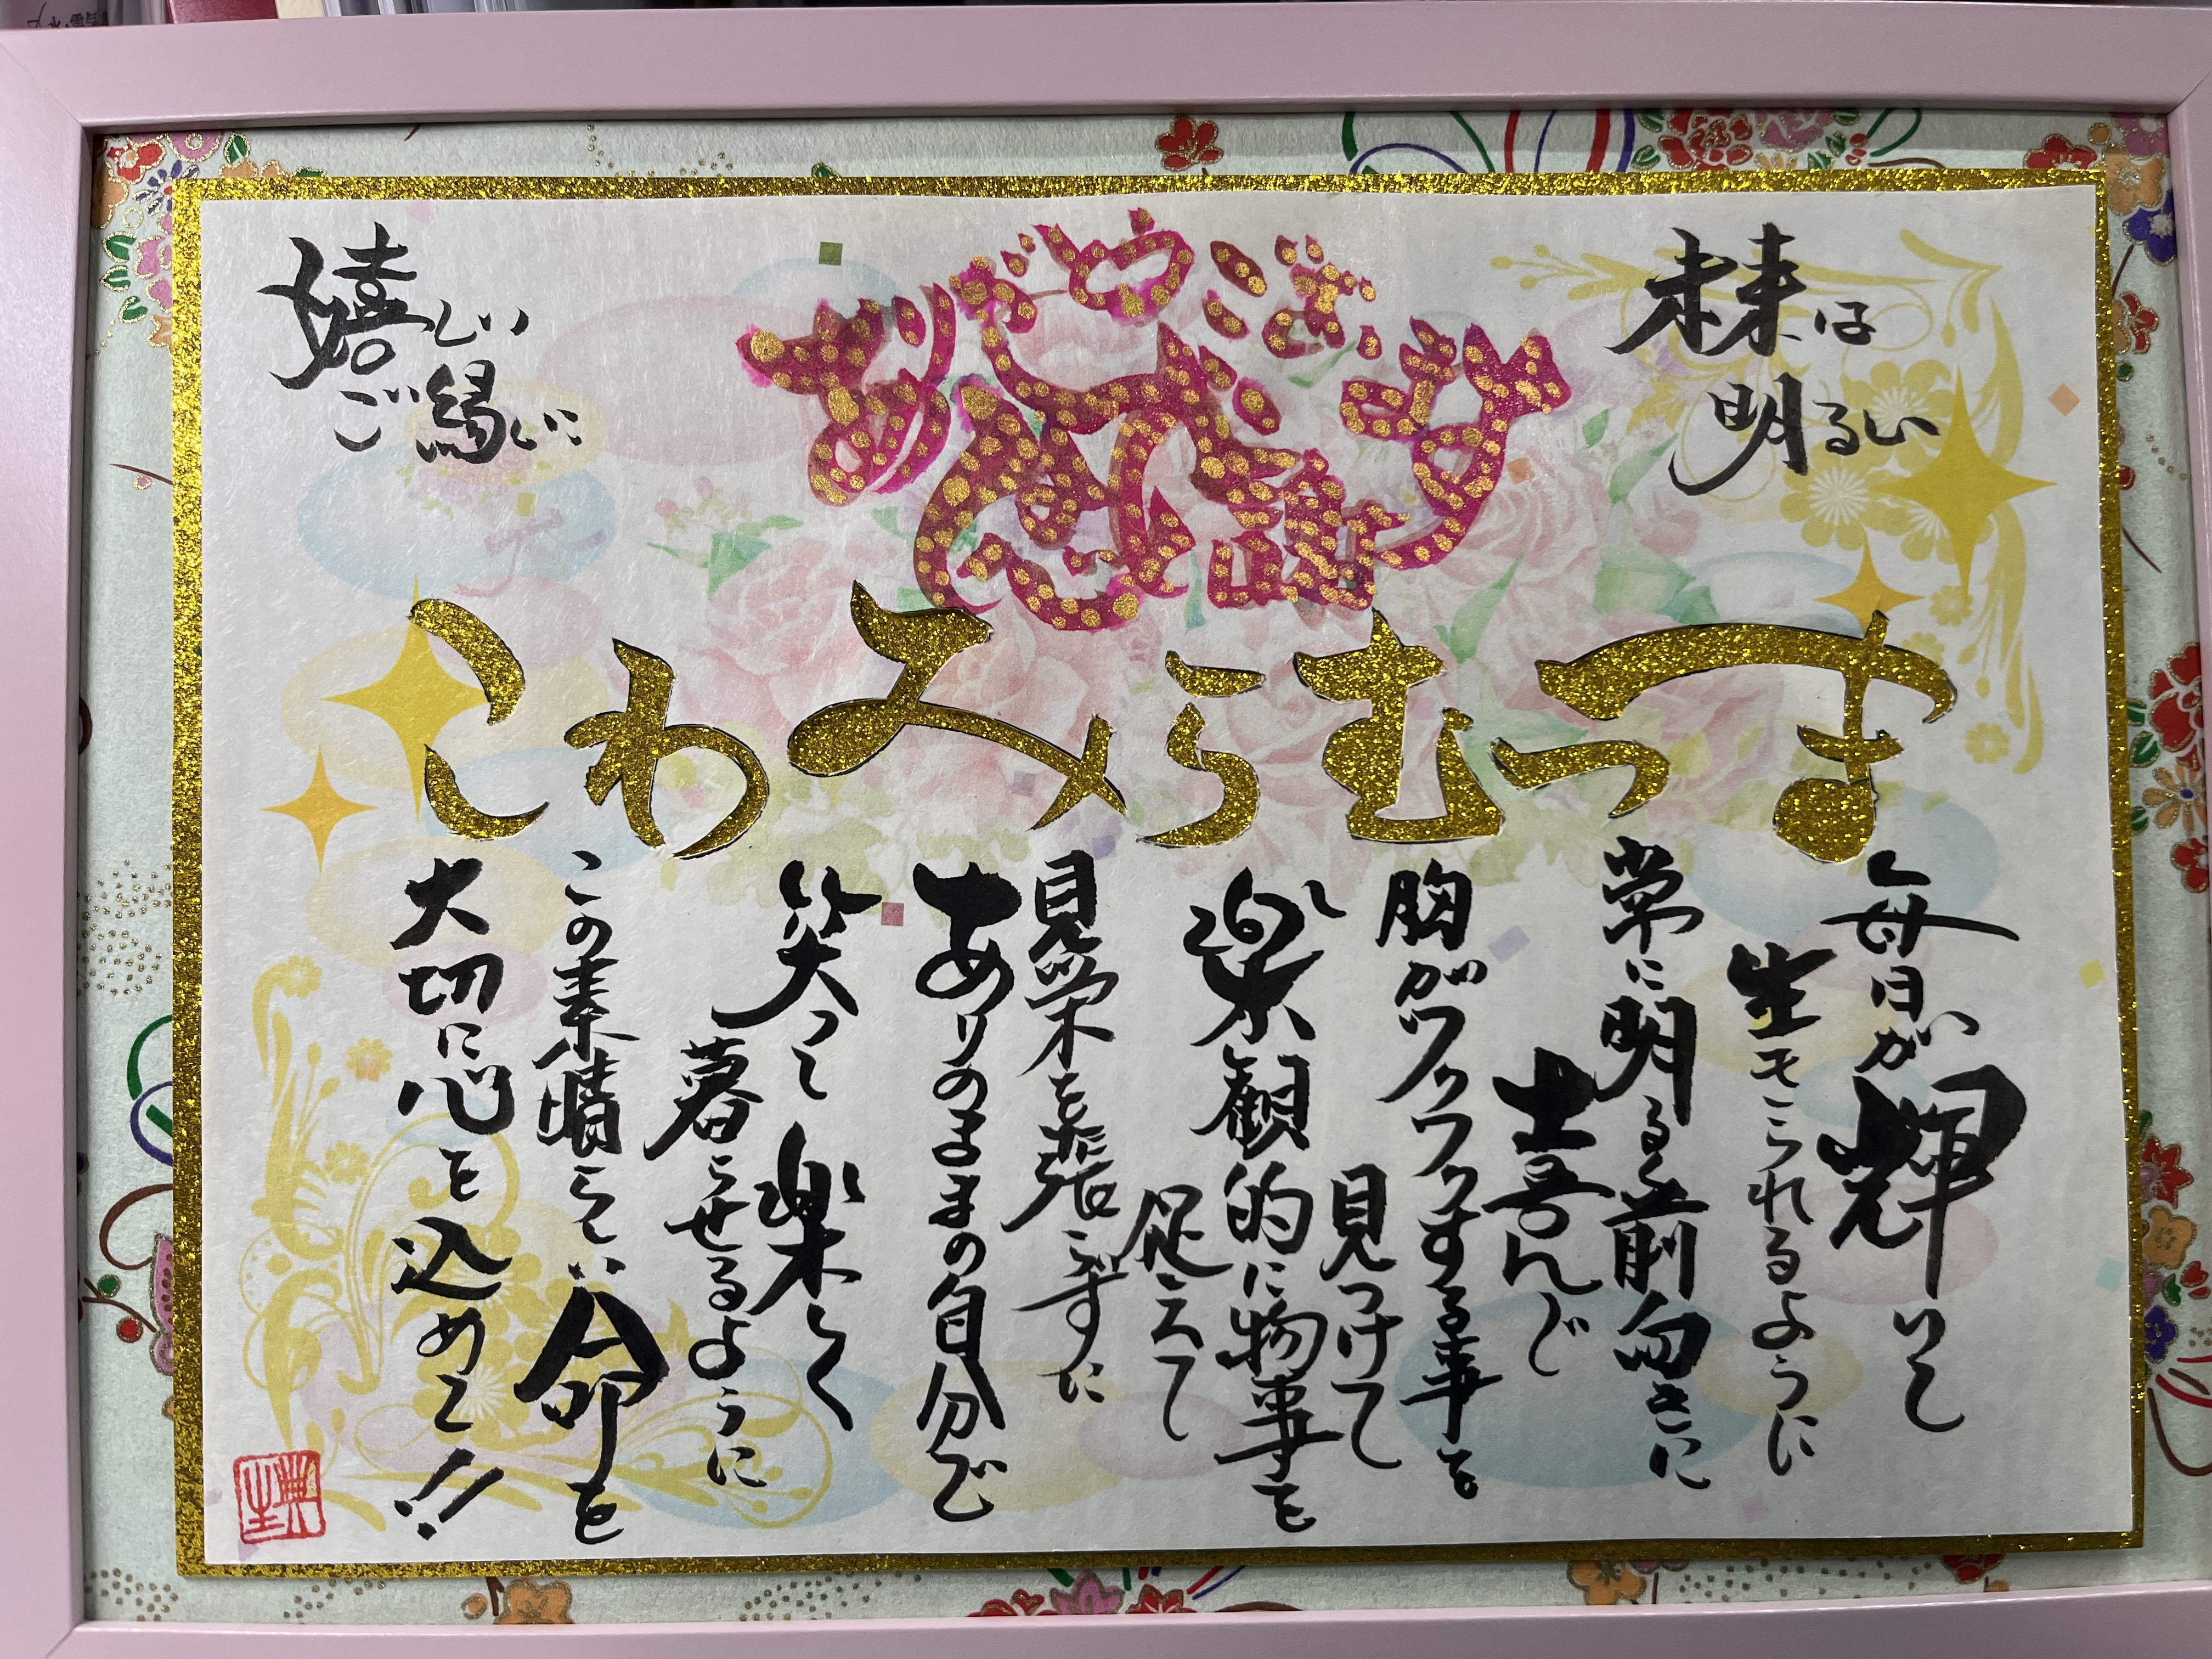 未来は
明るい
ありがとうございます
感謝
嬉しい
ご縁に
まつむらみわこ
毎日が輝いて
生きられるように
常に明るく前向きに
喜んで
胸がワクワクする事を
見つけて
楽観的に物事を
捉えて
見栄を張らずに
ありのままの自分で
笑って楽しく
暮らせるように
この素晴らしい命を
大切に心を込めて!!